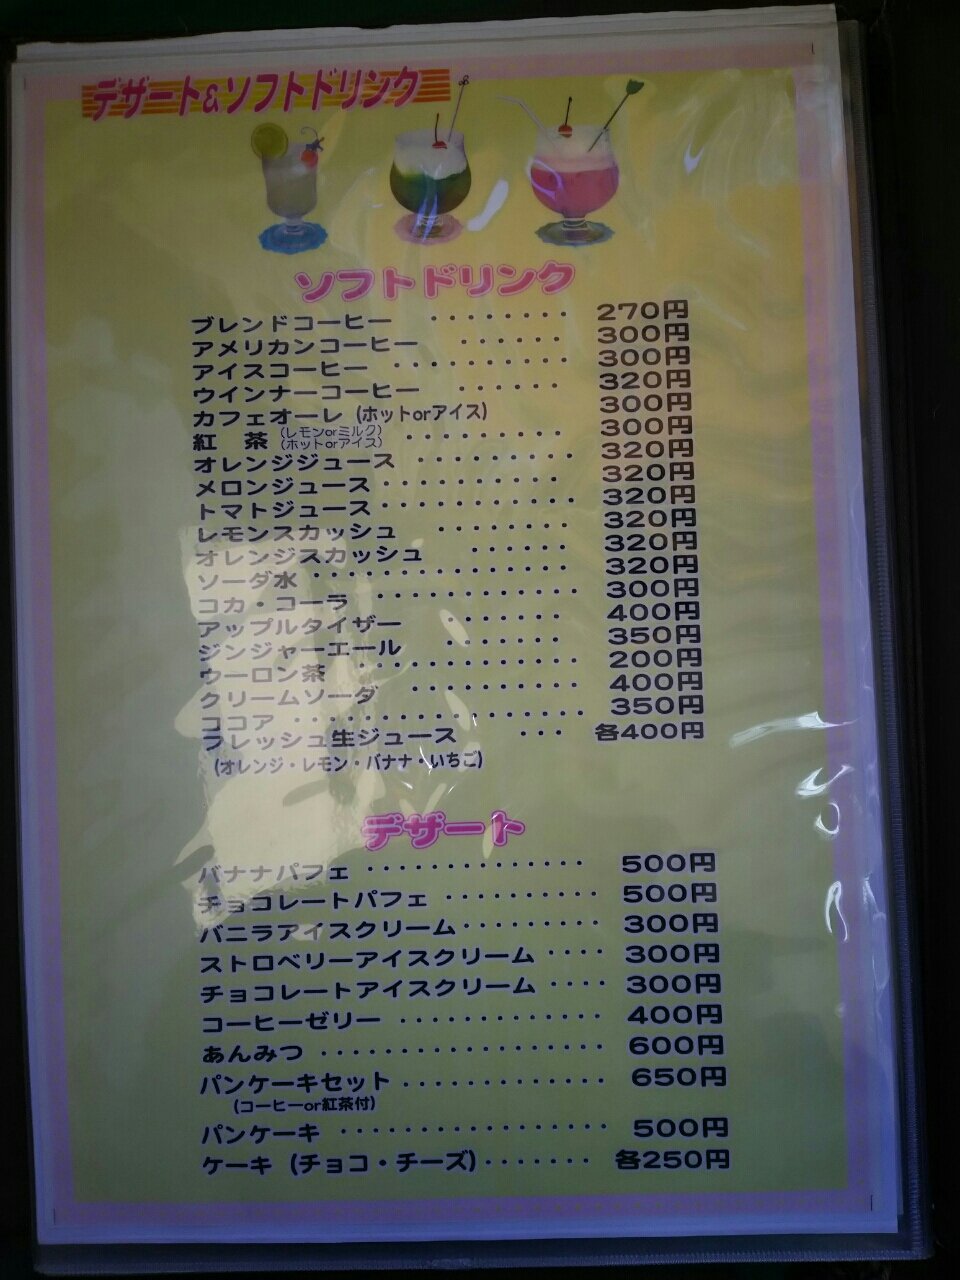 デザート&ソフトドリンク
ソフトドリンク
ブレンドコーヒー ・・・・・・・・ 270円
アメリカンコーヒー ・・・・・・ 300円
アイスコーヒー ・・・・・・・・・ 300円
ウインナーコーヒー ・・・・・・ 320円
カフェオーレ (ホットorアイス) 300円
紅 茶 (レモンorミルク) (ホットorアイス) ・・・・・・・・・ 300円
オレンジジュース ・・・・・・・・・ 320円
メロンジュース ・・・・・・・・・・ 320円
トマトジュース ・・・・・・・・・・・ 320円
レモンスカッシュ ・・・・・・・・ 320円
オレンジスカッシュ ・・・・・・ 320円
ソーダ水 ・・・・・・・・・・・・・・ 320円
コカ・コーラ ・・・・・・・・・・・・ 300円
アップルタイザー ・・・・・・・ 400円
ジンジャーエール ・・・・・・・ 350円
ウーロン茶 ・・・・・・・・・・・・・ 200円
クリームソーダ ・・・・・・・・・・ 400円
ココア ・・・・・・・・・・・・・・・・・ 350円
フレッシュ生ジュース ・・・ 各400円
(オレンジ・レモン・バナナ・いちご)
デザート
バナナパフェ ・・・・・・・・・・・・・ 500円
チョコレートパフェ ・・・・・・・・・ 500円
バニラアイスクリーム・・・・・・・・・ 300円
ストロベリーアイスクリーム ・・・・ 300円
チョコレートアイスクリーム ・・・・ 300円
コーヒーゼリー ・・・・・・・・・・・・ 400円
あんみつ ・・・・・・・・・・・・・・・・・ 600円
パンケーキセット・・・・・・・・・・・・ 650円
(コーヒーor紅茶付)
パンケーキ ・・・・・・・・・・・・・・・・ 500円
ケーキ (チョコ・チーズ)・・・・・・・ 各250円